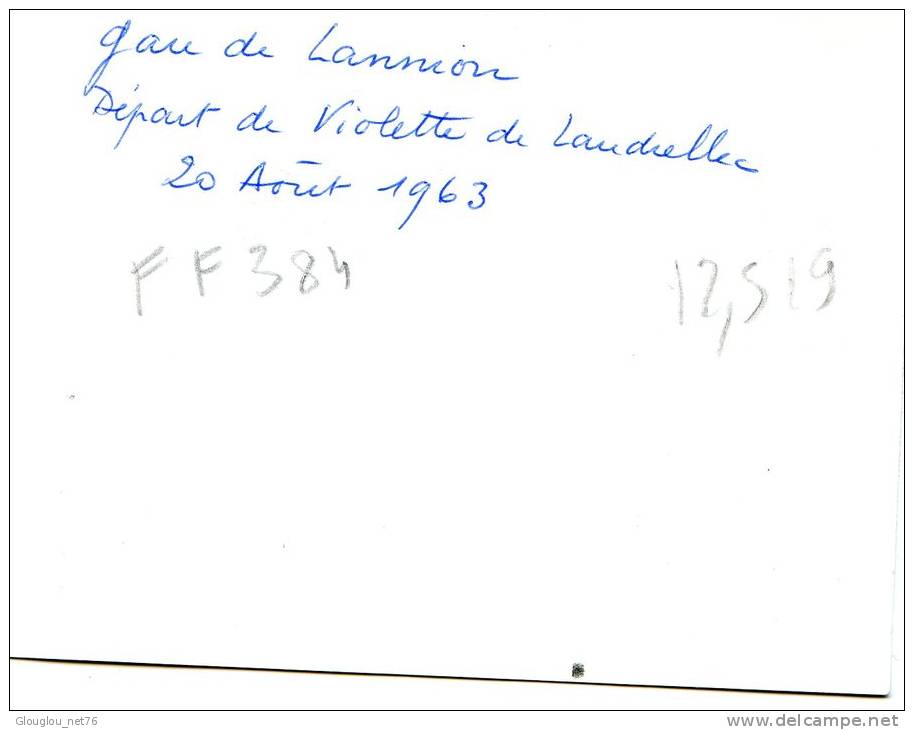 Gare de Lannion
Départ de Violette de Landrellec
20 Août 1963
FF384
12,5 19
Glouglou_net76
www.delcampe.net